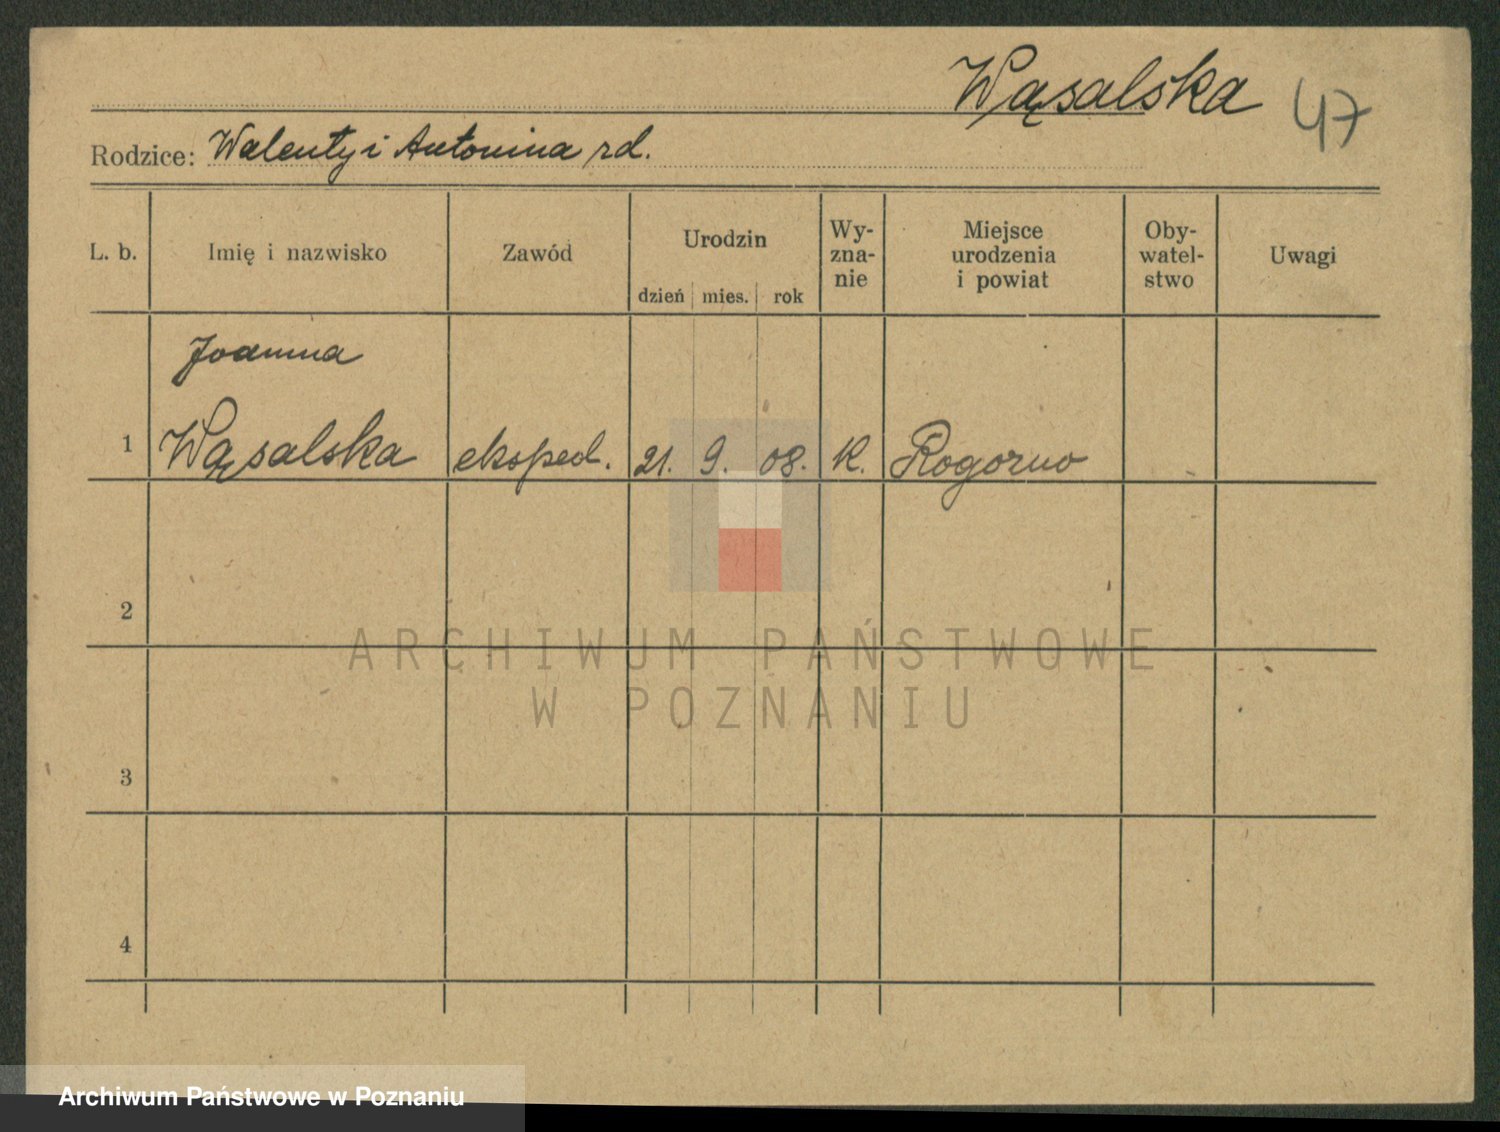 Wąsalska 47
Rodzice: Walenty i Antonina rd.
L. b. Imię i nazwisko Zawód Urodzin dzień mies. rok Wy-zna-nie Miejsce urodzenia i powiat Oby-watel-stwo Uwagi
Joanna
1 Wąsalska eksped. 21. 9. 08. K. Rogozno
2
ARCHIWUM PAŃSTWOWE
W POZNANIU
3
4
Archiwum Państwowe w Poznaniu